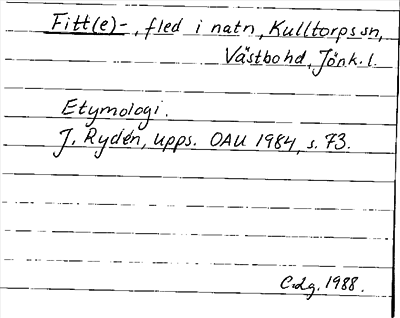 Fitt(e)-, fled i natn, Kulltorps sn,
Västbohd, Jönk. l.
Etymologi.
J. Rydén, Upps. OAU 1984, s. 73.
C.Lg. 1988.